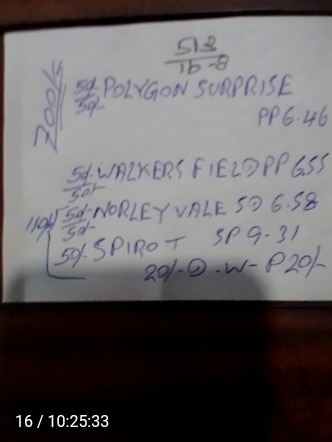 513
16-8
200/5
50/- POLYGON SURPRISE
50/-
PP 6.46
50/- WALKERS FIELD PP 6.55
50/-
110/- 50/- NORLEY VALE SD 6.58
50/-
50/- SPIROT SP 9-31
20/- D - W - P 20/-
16 / 10:25:33